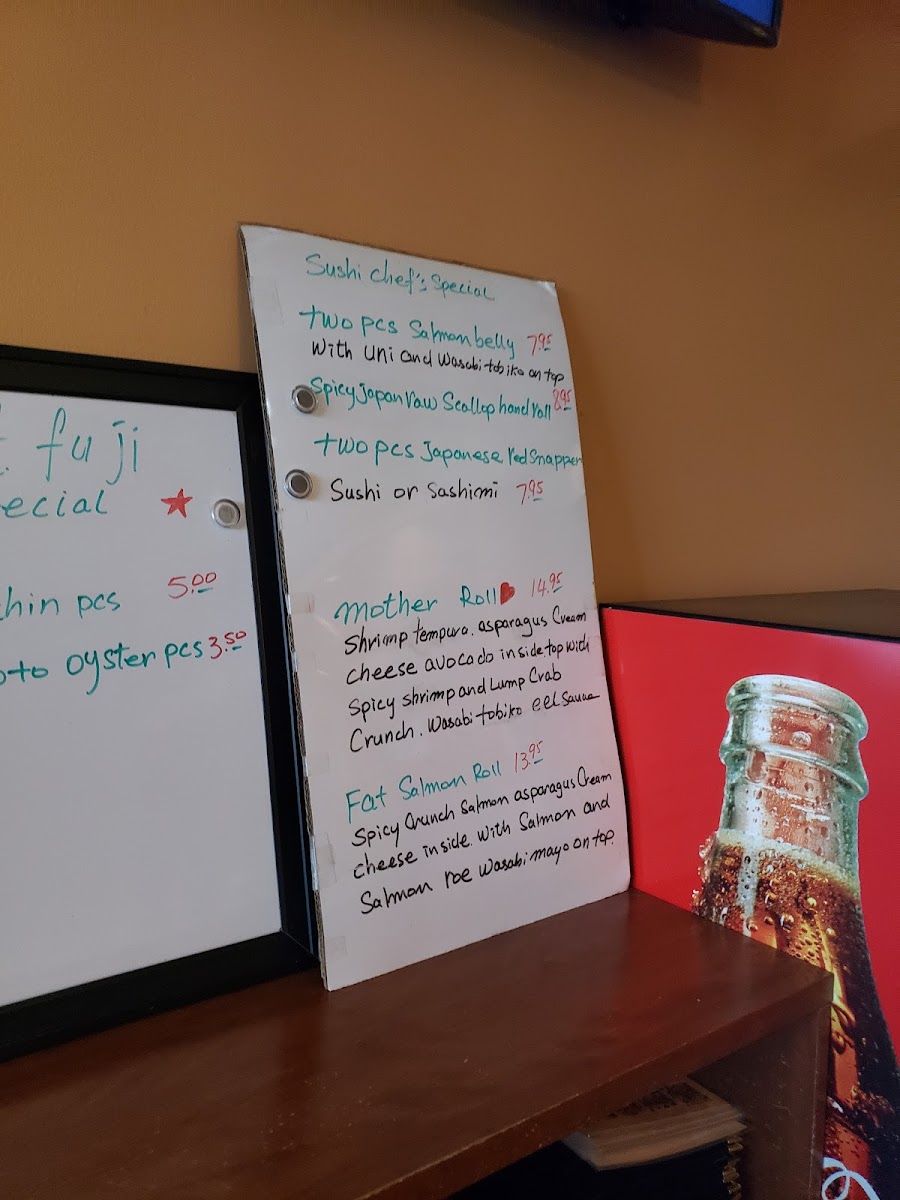 fuji
ecial
hin pcs 5.00
oyster pcs 3.50
Sushi chef's Special
two pcs Salmon belly 7.95
with uni and wasabi tobiko on top
Spicy Japan raw Scallop hand roll 8.95
two pcs Japanese red Snapper
Sushi or Sashimi 7.95
Mother Roll 14.95
Shrimp tempura. asparagus Cream
cheese avocado inside top with
Spicy shrimp and Lump Crab
Crunch. wasabi tobiko eel sauce
Fat Salmon Roll 13.95
Spicy Crunch Salmon asparagus Cream
cheese inside. with Salmon and
Salmon roe wasabi mayo on top.